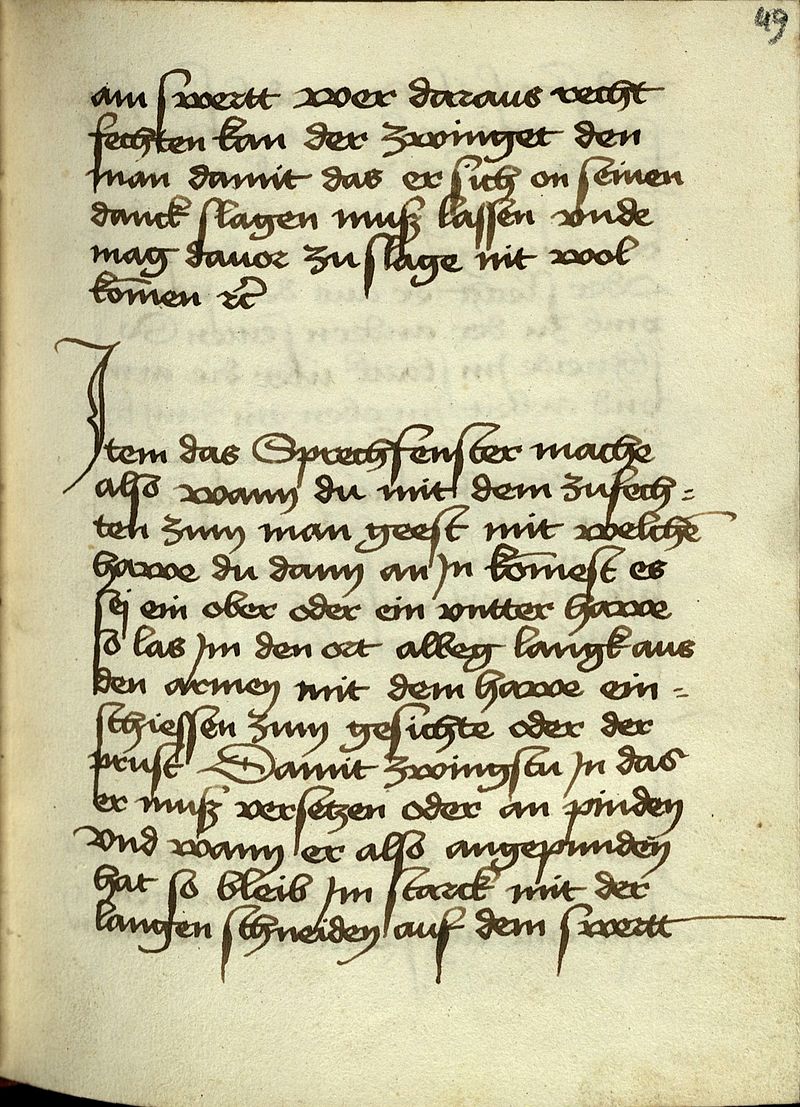 49
am swertt wer daraus recht
fechten kan der zwinget den
man damit das er sich on seinen
danck slagen muß lassen vnde
mag dauor zu slage nit wol
kom̄en ⁊c̃
Item das Sprechfenster mache
also wann du mit dem zufech=
ten zum man geest mit welchē
hawe du dann an jn kom̄est es
sej ein ober oder ein vntter hawe
so las jm den ort albeg langk aus
den armen mit dem hawe ein=
schiessen zum gesichte oder der
prust Damit zwingstu jn das
er muß versetzen oder an pinden
Vnd wann er also angepunden
hat so bleib jm starck mit der
langen schneiden auf dem swertt